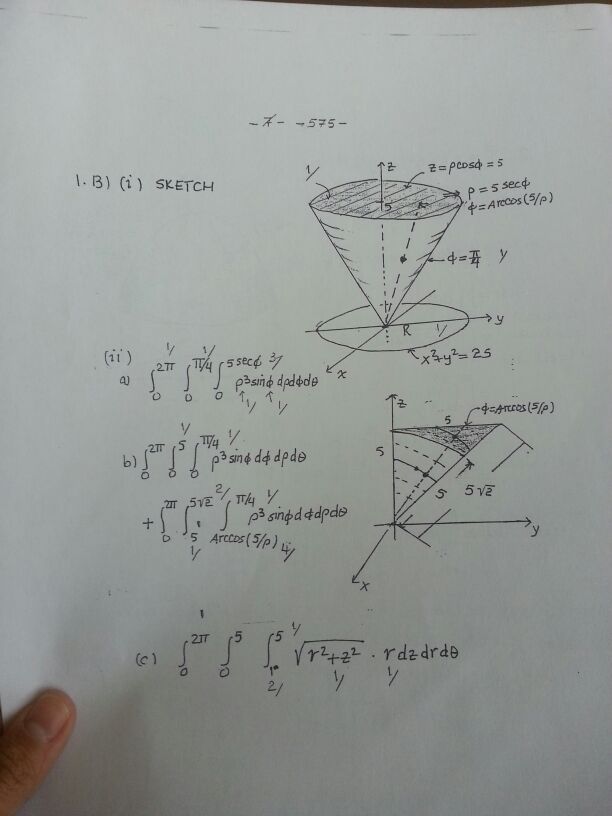 -7- -575-
1. B) (i) SKETCH
1/
z
z=ρcosφ=5
ρ=5 secφ
φ=Arccos(5/ρ)
5
φ=π/4
y
R
1/
x
x²+y²=25
(ii)
a) ∫₀^2π ∫₀^π/4 ∫₀^5secφ ρ³sinφ dρdφdθ
1/ 1/ 3/
1/ 1/
b) ∫₀^2π ∫₀^5 ∫₀^π/4 ρ³sinφ dφ dρdθ
1/ 1/
+ ∫₀^2π ∫₅^5√2 ∫_Arccos(5/ρ)^π/4 ρ³sinφ dφdρdθ
2/ 1/
1/ 4/
z
φ=Arccos(5/ρ)
5
5
5
5√2
y
x
(c) ∫₀^2π ∫₀^5 ∫_r^5 √(r²+z²) · r dz dr dθ
1/
2/ 1/ 1/